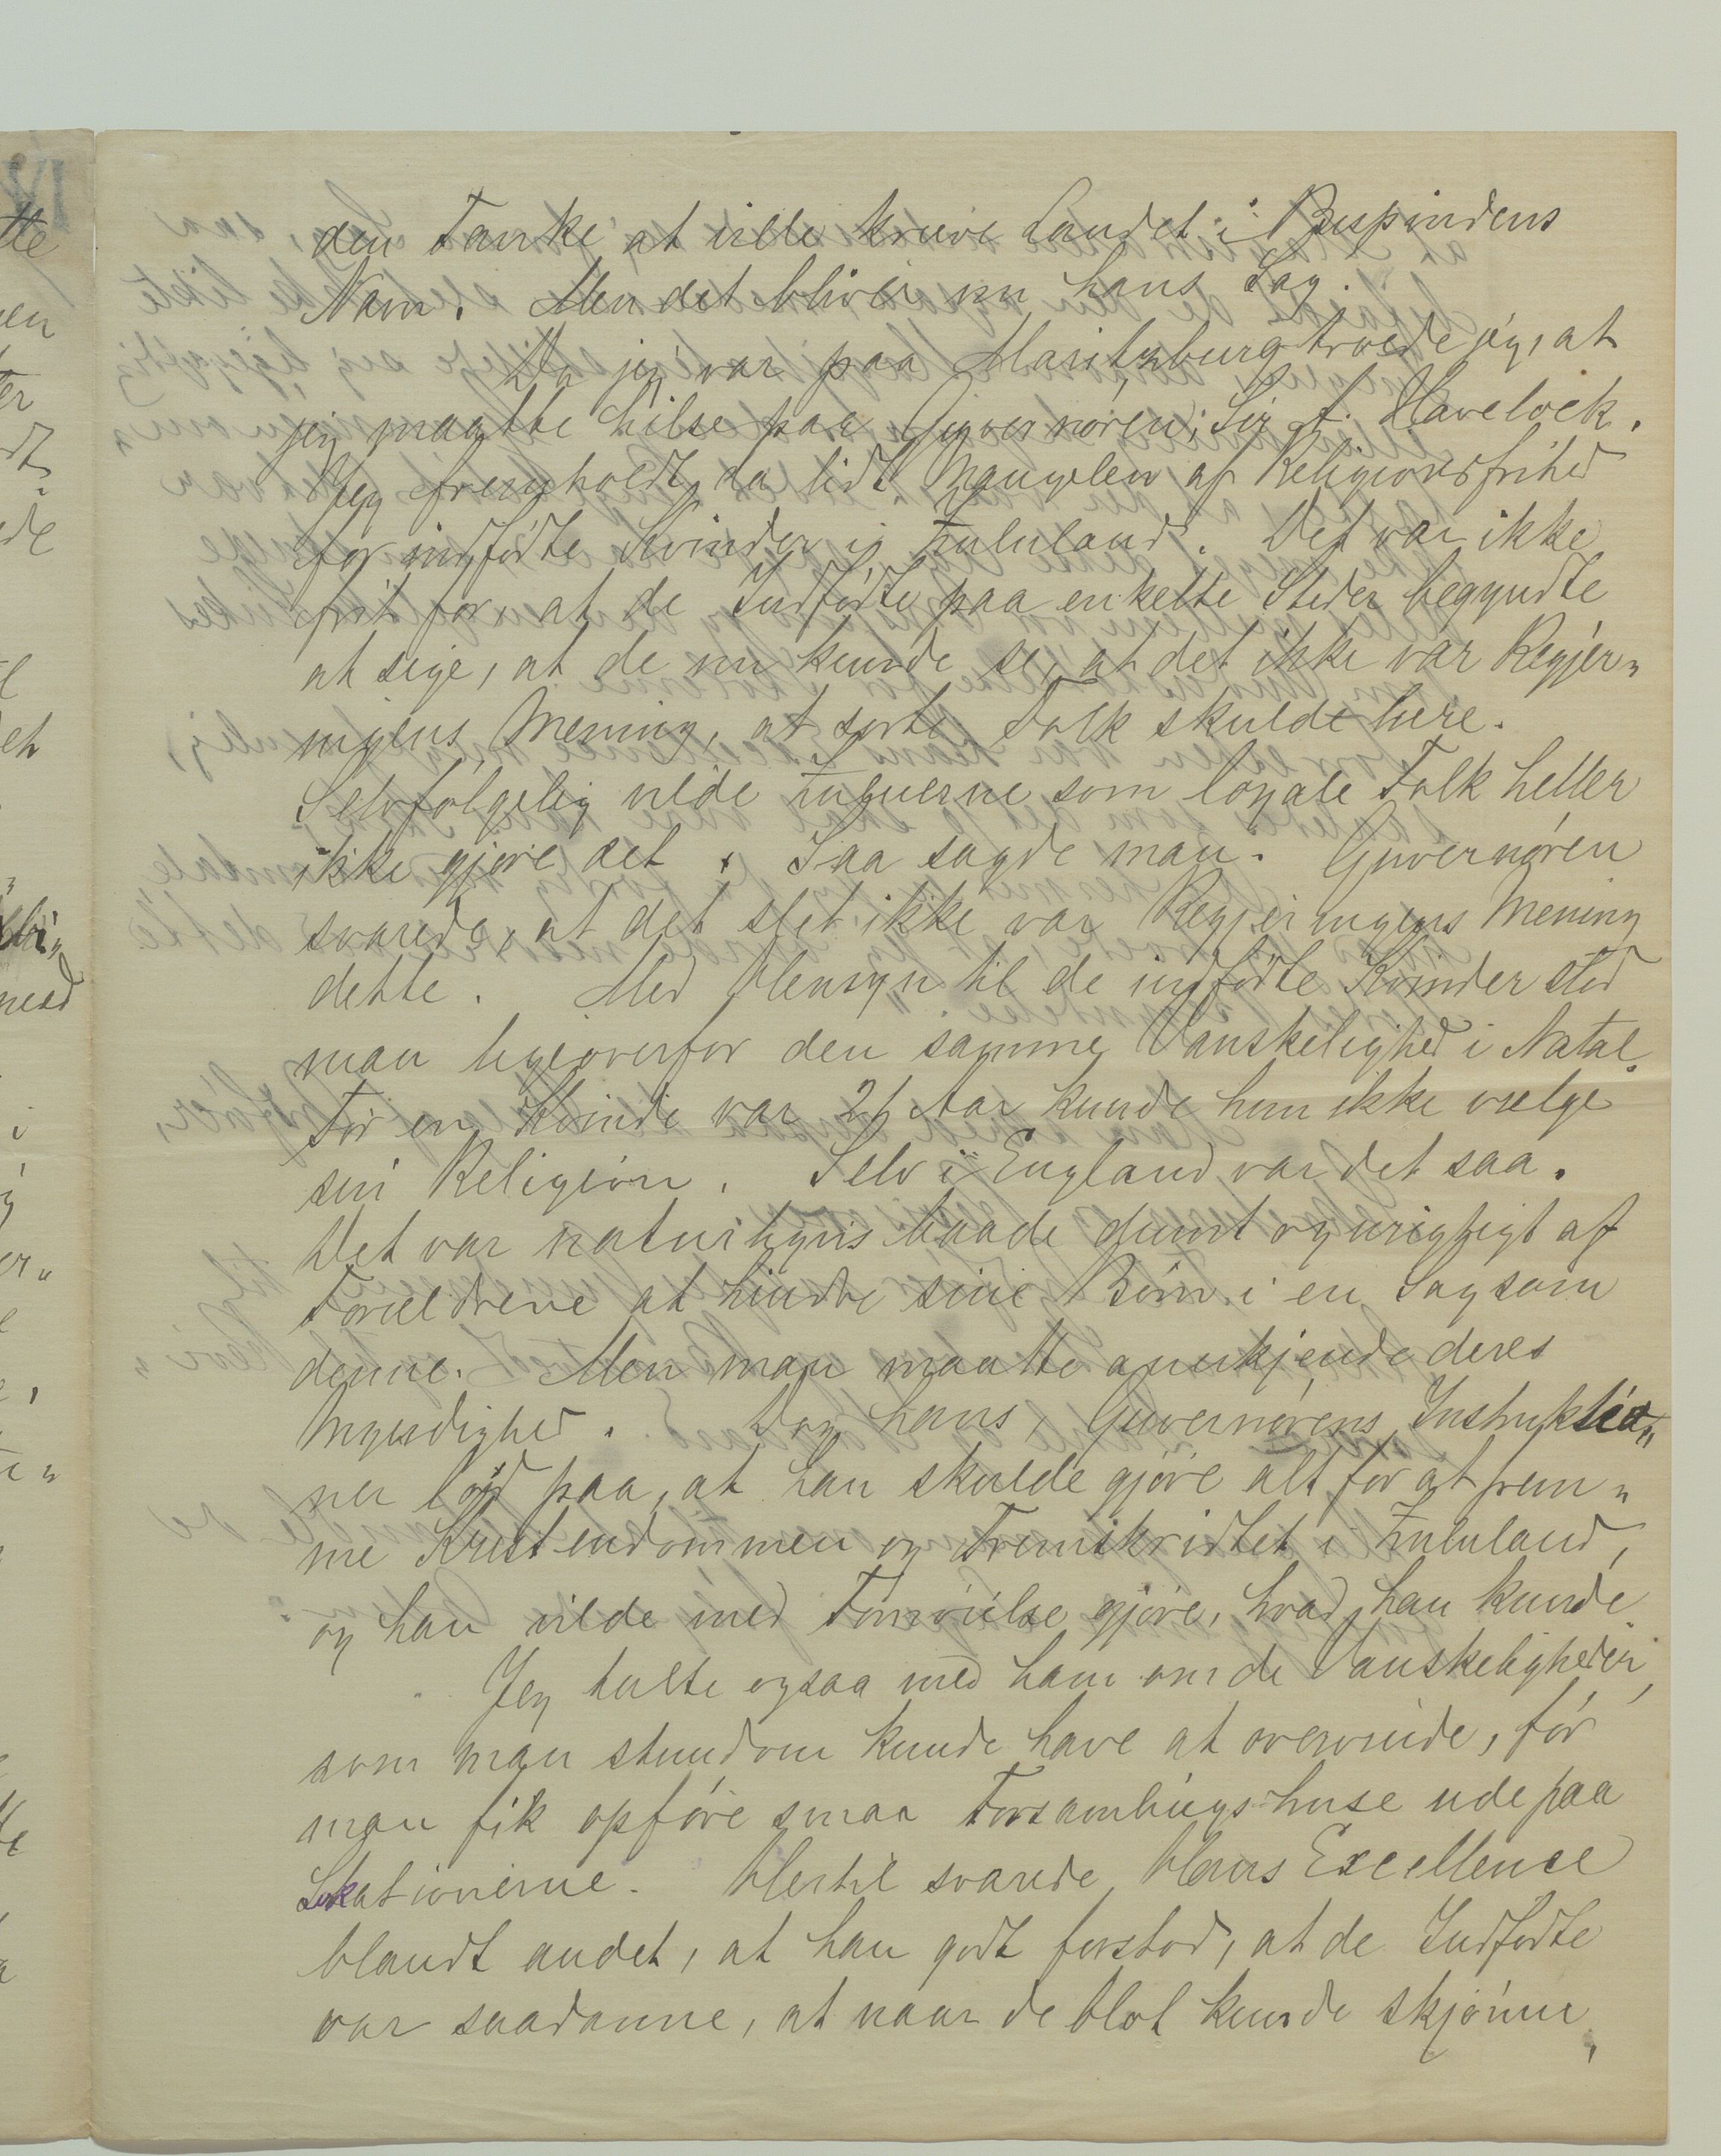 den Tanke at ville kræve Landet i Bispindens
Navn. Men det bliver nu hans Sag.
Da jeg var paa Maritzburg troede jeg, at
jeg maatte hilse paa Guvernøren, Sir A. Havelock.
Jeg fremholdt da lidt Mangelen af Religionsfrihed
for indfødte Kvinder i Zululand. Det var ikke
frit for, at de Indfødte paa enkelte Steder begyndte
at sige, at de nu kunde se, at det ikke var Regjer„
ingens Mening, at sorte Folk skulde lære.
Selvfølgelig vilde Zuluerne som loyale Folk heller
ikke gjøre det. Saa sagde man. Guvernøren
svarede, at det slet ikke var Regjeringens Mening
dette. Med Hensyn til de indfødte Kvinder stod
man ligeoverfor den samme Vanskelighed i Natal.
Før en Kvinde var 21 Aar kunde hun ikke vælge
sin Religion. Selv i England var det saa.
Det var naturligvis baade dumt og urigtigt af
Forældrene at hindre sine Børn i en Sag som
denne. Men man maatte anerkjende deres
Myndighed. Dog hans, Guvernørens Instruktio„
ner lød paa, at han skulde gjøre alt for at frem„
me Kristendommen og Fremskridtet i Zululand,
og han vilde med Fornøielse gjøre, hvad han kunde.
Jeg talte ogsaa med ham om de Vanskeligheder,
som man stundom kunde have at overvinde, før
man fik opføre smaa Forsamlingshuse ude paa
Lokationerne. Hertil svarede Hans Excellence
blandt andet, at han godt forstod, at de Indfødte
var saadanne, at naar de blot kunde skjønne,